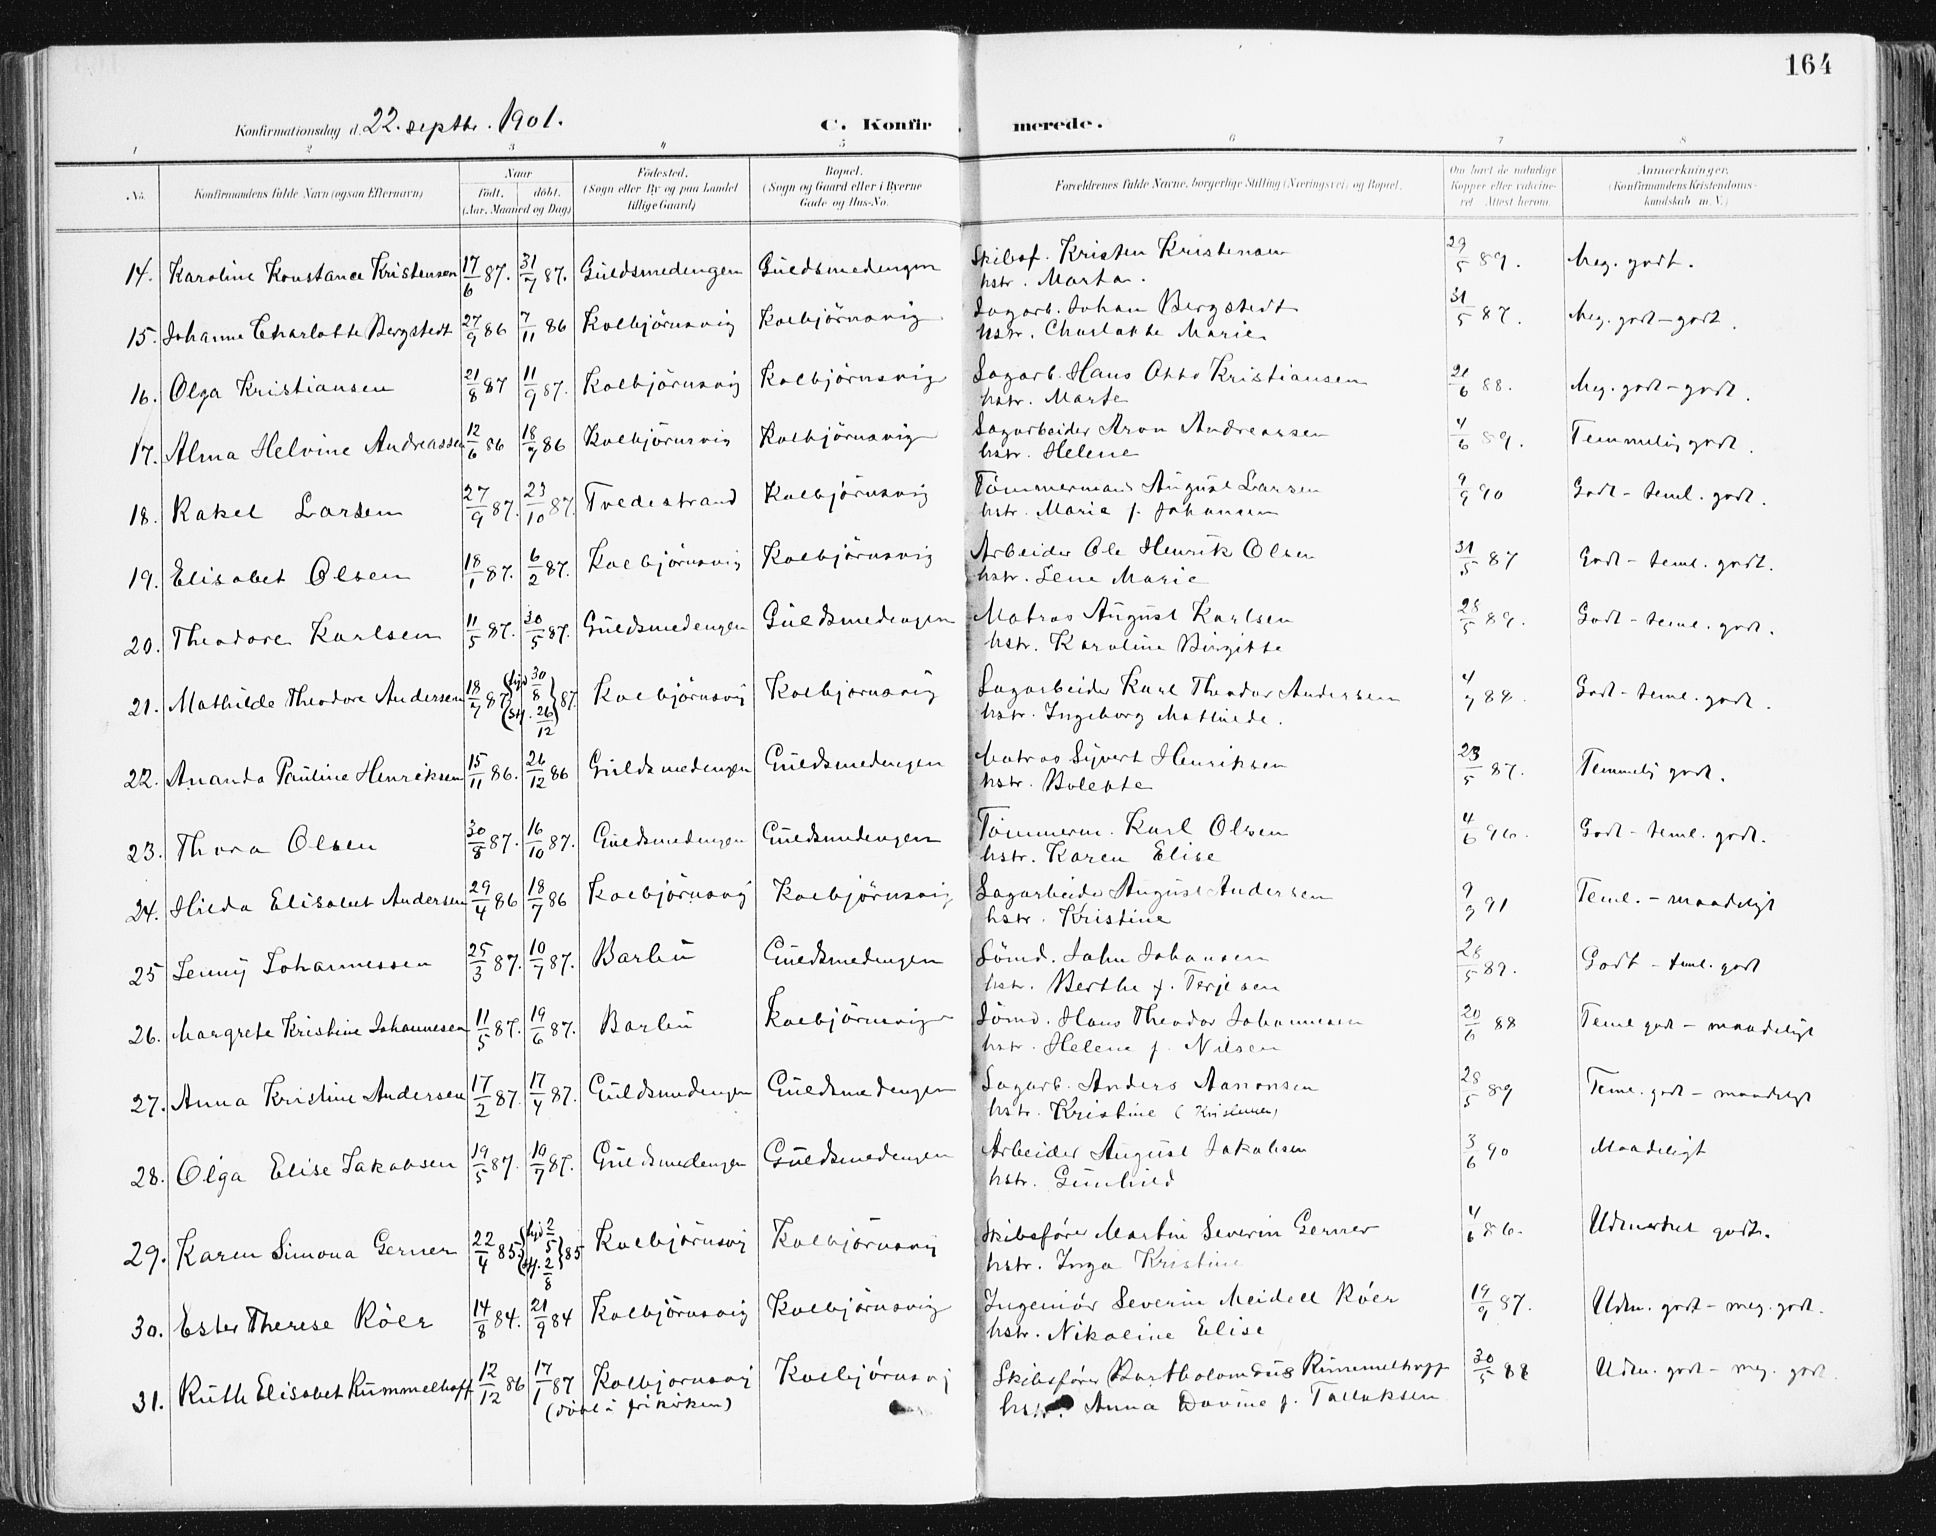 164
Konfirmationsdag d. 22. septbr. 1901.
C. Konfir merede.
1 2 3 4 5 6 7 8
No. Konfirmandens fulde Navn (ogsaa Efternavn) Naar født, døbt. (Aar, Maaned og Dag) Fødested. (Sogn eller By og paa Landet tillige Gaard) Bopæl. (Sogn og Gaard eller i Byerne Gade og Hus-No. Forældrenes fulde Navne, borgerlige Stilling (Næringsvei) og Bopæl. Om havt de naturlige Kopper eller vaccineret. Attest herom. Anmærkninger. (Konfirmandens Kristendomskundskab m. V.)
14. Karoline Konstance Kristensen 17/6 87. 31/7 87. Guldsmedengen Guldsmedengen Skibsf. Kristen Kristensen 29/5 89. Meg. godt.
hstr. Marta.
15. Johanne Charlotte Bergstedt 27/9 86 7/11 86 Kolbjörnsvig Kolbjörnsvig Sagarb. Johan Bergstedt 31/5 87. Meg. godt - godt.
hstr. Charlotte Marie
16. Olga Kristiansen 21/8 87 11/9 87. Kolbjörnsvig Kolbjörnsvig Sagarb. Hans Otto Kristiansen 21/6 88. Meg. godt - godt.
hstr. Marte
17. Alma Helvine Andreassen 12/6 86 18/7 86 Kolbjörnsvig Kolbjörnsvig Sagarbeider Aron Andreassen 4/6 89. Temmelig godt.
hstr. Helene
18. Rakel Larsen 27/9 87. 23/10 87 Tvedestrand Kolbjörnsvig Tömmermand August Larsen 9/9 90 Godt - teml. godt.
hstr. Marie f. Johansen
19. Elisabet Olsen 18/1 87. 6/2 87. Kolbjörnsvig Kolbjörnsvig Arbeider Ole Henrik Olsen 31/5 87 Godt - teml. godt.
hstr. Lene Marie
20. Theodore Karlsen 11/5 87. 30/5 87. Guldsmedengen Guldsmedengen Matros August Karlsen 28/5 89. Godt - teml. godt.
hstr. Karoline Birgitte
21. Mathilde Theodore Andersen 18/7 87 (hjd 30/8 st. 26/12) 87. Kolbjörnsvig Kolbjörnsvig Sagarbeider Karl Theodor Andersen 4/7 88. Godt - teml. godt.
hstr. Ingeborg Mathilde.
22. Ananda Pauline Henriksen 15/11 86. 26/12 86 Guldsmedengen Guldsmedengen Matros Sijvert Henriksen 23/5 87. Temmelig godt.
hstr. Bolette
23. Thora Olsen 30/8 87. 16/10 87. Guldsmedengen Guldsmedengen Tömmerm. Karl Olsen 4/6 96. Godt - teml. godt.
hstr. Karen Elise
24. Hilda Elisabet Andersen 29/4 86 18/7 86 Kolbjörnsvig Kolbjörnsvig Sagarbeider August Andersen 9/9 91 Teml. - maadeligt
hstr. Kristine
25 Jenny Johannessen 25/3 87. 10/7 87. Barbu Guldsmedengen Sömd. John Johansen 28/5 89. Godt - teml. godt
hstr. Berthe f. Terjesen
26. Margrete Kristine Johannesen 11/5 87. 19/6 87. Barbu Kolbjörnsvig Sömd. Hans Theodor Johannesen 20/6 88 Teml godt - maadeligt
hstr. Helene f. Nilsen
27. Anna Kristine Andersen 17/2 87. 17/4 87. Guldsmedengen Guldsmedengen Sagarb. Anders Aanonsen 28/5 89 Teml. godt - maadeligt
hstr. Kristine
28. Olga Elise Jakobsen 19/5 87. 10/7 87. Guldsmedengen Guldsmedengen Arbeider August Jakobsen 3/6 90 Maadeligt
hstr. Gunhild
29. Karen Simona Gerner 22/4 85. (hjd 2/5 st. 2/8) 85 Kolbjörnsvig Kolbjörnsvig Skibsfører Martin Severin Gerner 4/6 86. Udmærket godt.
hstr. Inga Kristine
30. Ester Therese Röer 14/8 84. 21/9 84 Kolbjörnsvig Kolbjörnsvig Ingeniör Severin Meidell Röer 19/9 87. Udm. godt - meg. godt.
hstr. Nikoline Elise
31. Ruth Elisabet Rummelhoff 12/12 86 17/1 87 Kolbjornsvig Kolbjörnsvig Skibsfører Bartholomæus Rummelhoff 30/5 88 Udm. godt - meg. godt.
(döbt i frikirken) hstr. Anna Davine f. Tallaksen